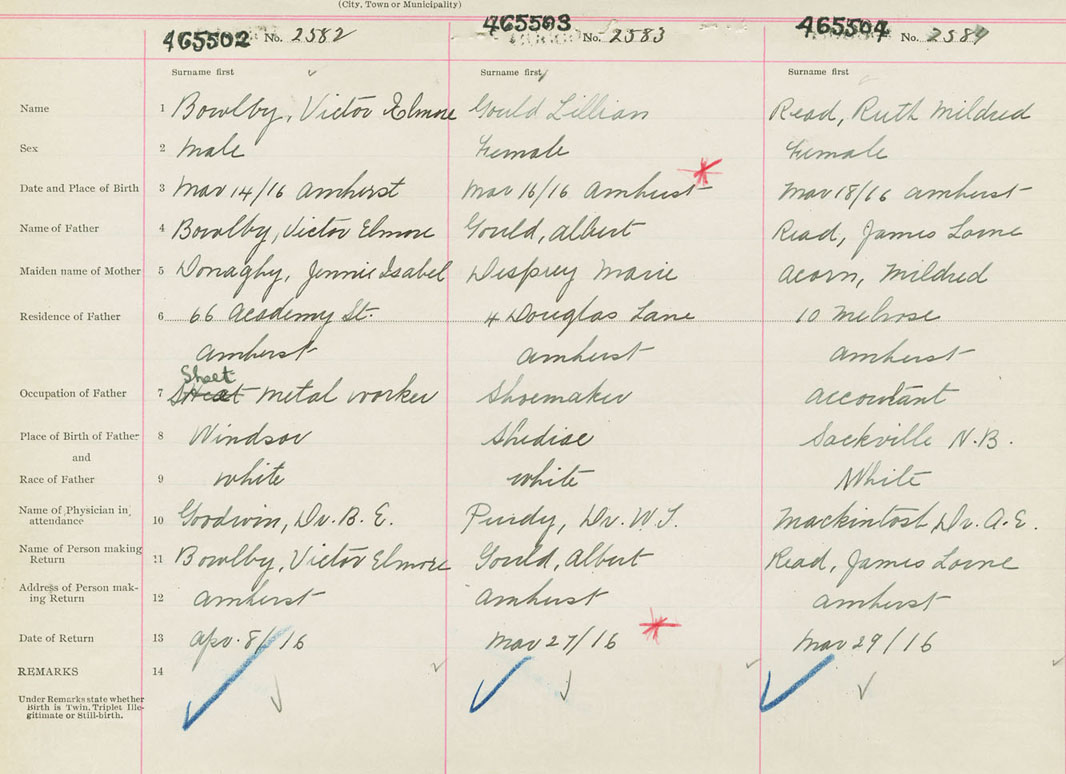 (City, Town or Municipality)
465502 No. 2582 465503 No. 2583 465504 No. 2584
Surname first Surname first Surname first
Name 1 Bowlby, Victor Elmore Gould Lillian Read, Ruth Mildred
Sex 2 Male Female Female
Date and Place of Birth 3 Mar 14/16 Amherst Mar 16/16 Amherst Mar 18/16 Amherst
Name of Father 4 Bowlby, Victor Elmore Gould, Albert Read, James Lorne
Maiden name of Mother 5 Donaghy, Jennie Isabel Desprey Marie Acorn, Mildred
Residence of Father 6 66 Academy St. 4 Douglas Lane 10 Melrose
Amherst Amherst Amherst
Sheet
Occupation of Father 7 metal worker Shoemaker Accountant
Place of Birth of Father 8 Windsor Shediac Sackville N.B.
and
Race of Father 9 white white White
Name of Physician in
attendance 10 Goodwin, Dr. B. E. Purdy, Dr. W. T. Mackintosh, Dr. A. E.
Name of Person making
Return 11 Bowlby, Victor Elmore Gould, Albert Read, James Lorne
Address of Person mak-
ing Return 12 Amherst Amherst Amherst
Date of Return 13 Apr. 8/16 Mar 27/16 Mar 29/16
REMARKS 14
Under Remarks state whether
Birth is Twin, Triplet Ille-
gitimate or Still-birth.